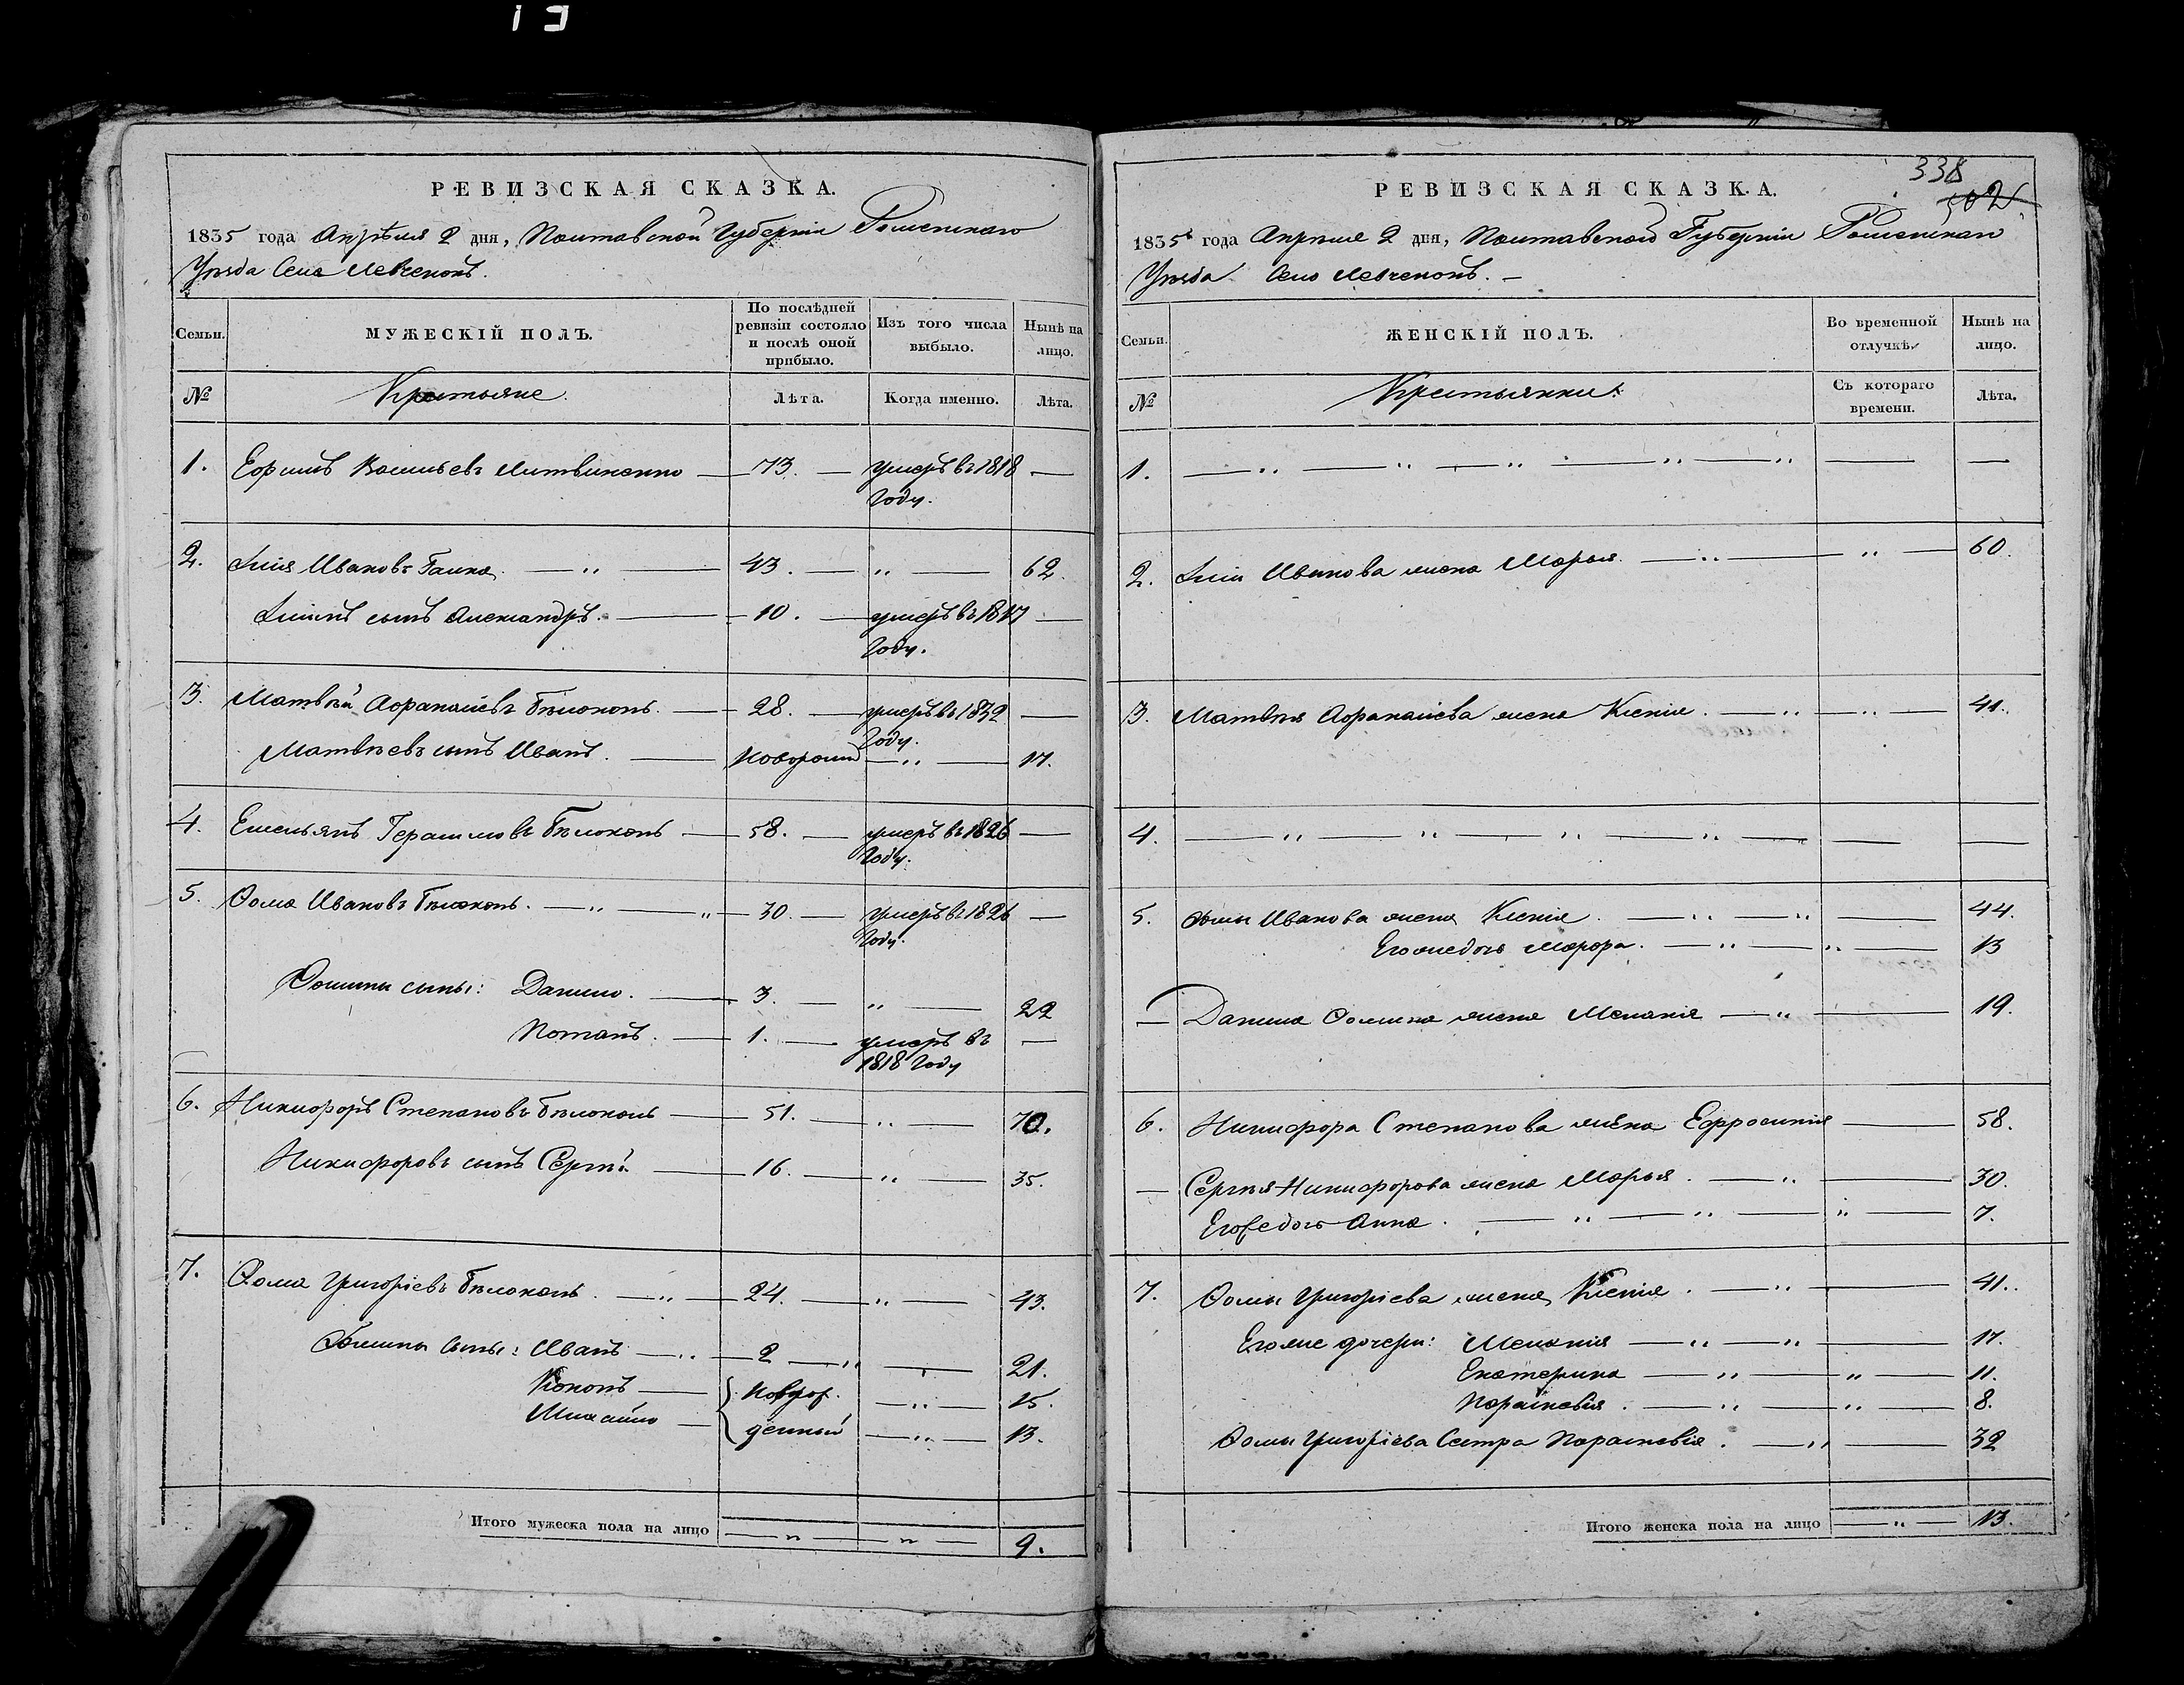 РЕВИЗСКАЯ СКАЗКА.
1835 года Апрѣля 2 дня, Полтавской Губерніи Роменскаго
Уѣзда Села Левченокъ.
Семьи.
МУЖЕСКІЙ ПОЛЪ.
По послѣдней ревизіи состояло и послѣ оной прибыло.
Изъ того числа выбыло.
Нынѣ на лицо.
№ Крестьяне. Лѣта. Когда именно. Лѣта.
1. Ефримъ Васильевъ Литвиненко — 73. — умеръ въ 1818 —
году.
2. Илія Ивановъ Галка — „ — 43. — „ — 62.
Иліинъ сынъ Александръ. — 10. — умеръ въ 1817 —
году.
3. Матвѣй Афанасіевъ Бѣлоконь. — 28. — умеръ въ 1832 —
году.
Матвѣевъ сынъ Иванъ. — новорожд — „ — 17.
4. Емельянъ Герасимовъ Бѣлоконь — 58. — умеръ въ 1826 —
году.
5. Фома Ивановъ Бѣлоконь. — „ — „ — 30. — умеръ въ 1826 —
году.
Фомины сыны: Данило. — 3. — „ — 22
Потапъ. — 1. — умеръ въ —
1818 году
6. Никифоръ Степановъ Бѣлоконь — 51. — „ — 70.
Никифоровъ сынъ Сергѣй — 16. — „ — 35.
7. Фома Григоріевъ Бѣлоконь. — „ — 24. — „ — 43.
Фомины сыны: Иванъ — „ — 2 — „ — 21.
Кононъ — новорож — „ — 15.
Михайло — денный — „ — 13.
Итого мужеска пола на лицо — „ — „ — 9.
338
502
РЕВИЗСКАЯ СКАЗКА.
1835 года Апрѣля 2 дня, Полтавской Губерніи Роменскаго
Уѣзда Села Левченокъ. —
Семьи.
ЖЕНСКІЙ ПОЛЪ.
Во временной отлучкѣ.
Нынѣ на лицо.
№ Крестьянки. Съ котораго времени. Лѣта.
1. — „ — „ — „ — „ — „ — —
2. Иліи Иванова жена Марья. — „ — „ — 60.
3. Матвѣя Афанасіева жена Ксенія. — „ — „ — 41.
4. — „ — „ — „ — „ — — —
5. Фомы Иванова жена Ксенія. — „ — „ — 44.
Его же дочь Мавра. — „ — „ — 13
— Данила Фомина жена Меланія — „ — 19.
6. Никифора Степанова жена Ефросинія — 58.
— Сергѣя Никифорова жена Марья. — „ — 30.
Его дочь Анна. — „ — „ — „ — 7.
7. Фомы Григоріева жена Ксенія. — „ — 41.
Его же дочери: Меланія — „ — „ — 17.
Екатерина — „ — „ — 11.
Парасковія. — „ — „ — 8.
Фомы Григоріева Сестра Парасковія. — „ — 32
Итого женска пола на лицо — „ — 13.